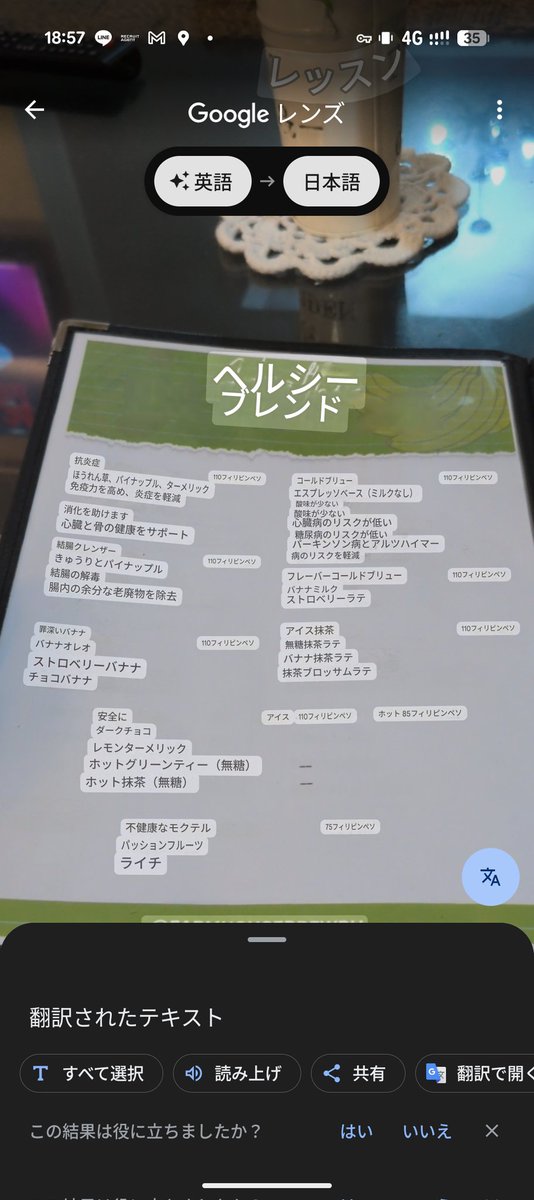 18:57
LINE
RECRUIT
AGENT
4G
35
レッスン
Google レンズ
英語
日本語
ヘルシー
ブレンド
抗炎症
110フィリピンペソ
ほうれん草、パイナップル、ターメリック
免疫力を高め、炎症を軽減
消化を助けます
心臓と骨の健康をサポート
結腸クレンザー
110フィリピンペソ
きゅうりとパイナップル
結腸の解毒
腸内の余分な老廃物を除去
コールドブリュー
110フィリピンペソ
エスプレッソベース（ミルクなし）
酸味が少ない
酸味が少ない
心臓病のリスクが低い
糖尿病のリスクが低い
パーキンソン病とアルツハイマー
病のリスクを軽減
フレーバーコールドブリュー
110フィリピンペソ
バナナミルク
ストロベリーラテ
罪深いバナナ
110フィリピンペソ
バナナオレオ
ストロベリーバナナ
チョコバナナ
アイス抹茶
110フィリピンペソ
無糖抹茶ラテ
バナナ抹茶ラテ
抹茶ブロッサムラテ
安全に
アイス
110フィリピンペソ
ホット 85フィリピンペソ
ダークチョコ
レモンターメリック
ホットグリーンティー（無糖）
ホット抹茶（無糖）
不健康なモクテル
75フィリピンペソ
パッションフルーツ
ライチ
翻訳されたテキスト
すべて選択
読み上げ
共有
翻訳で開く
この結果は役に立ちましたか？
はい
いいえ